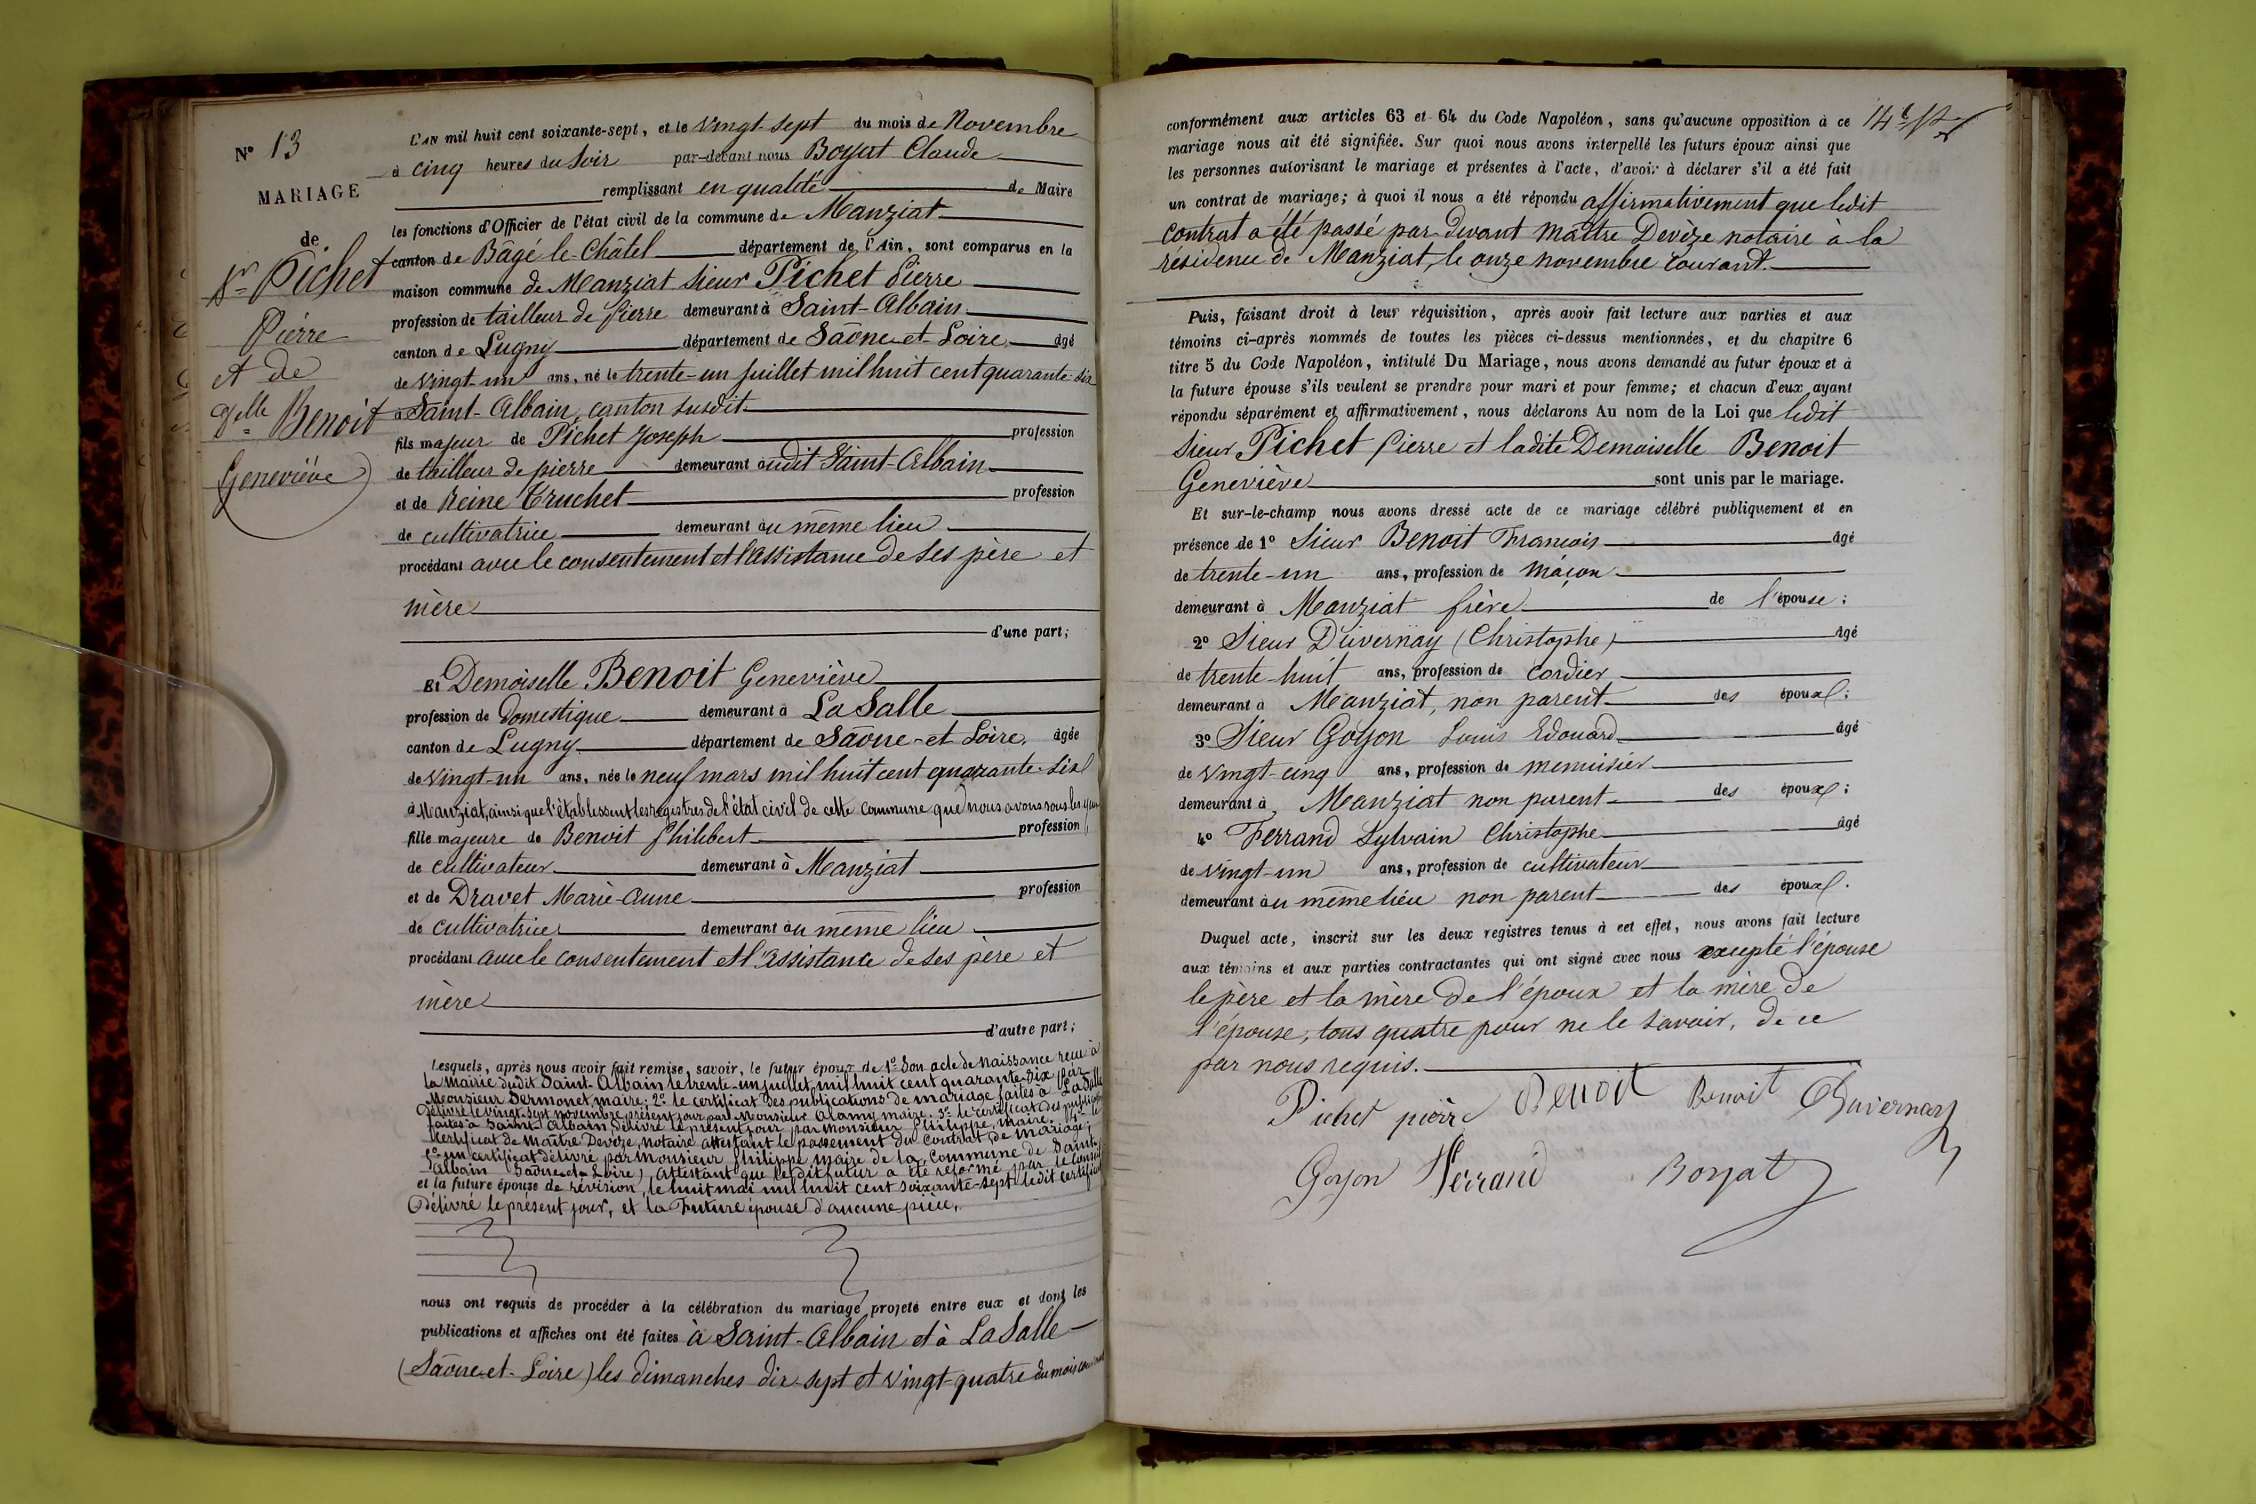 N° 13
MARIAGE
de
Sr Pichet
Pierre
et de
Delle Benoit
Geneviève
L'AN mil huit cent soixante-sept, et le vingt-sept du mois de Novembre
à cinq heures du soir par-devant nous Boyat Claude
remplissant en qualité de Maire
les fonctions d'Officier de l'état civil de la commune de Manziat
canton de Bâgé-le-Châtel département de l'Ain, sont comparus en la
maison commune de Manziat Sieur Pichet Pierre
profession de tailleur de pierre demeurant à Saint-Albain
canton de Lugny département de Saône-et-Loire âgé
de vingt-un ans, né le trente-un juillet mil huit cent quarante-six
à Saint-Albain, canton susdit.
fils majeur de Pichet Joseph profession
de tailleur de pierre demeurant audit Saint-Albain
et de Reine Truchet profession
de cultivatrice demeurant au même lieu
procédant avec le consentement et l'assistance de ses père et
mère
d'une part;
Et Demoiselle Benoit Geneviève
profession de Domestique demeurant à La Salle
canton de Lugny département de Saône-et-Loire, âgée
de vingt-un ans, née le neuf mars mil huit cent quarante-six
à Manziat, ainsi que l'établissent les registres de l'état civil de cette commune que nous avons sous les yeux
fille majeure de Benoit Philibert profession
de cultivateur demeurant à Manziat
et de Dravet Marie-Anne profession
de cultivatrice demeurant au même lieu
procédant avec le consentement et l'assistance de ses père et
mère
d'autre part;
Lesquels, après nous avoir fait remise, savoir, le futur époux de 1° Son acte de naissance reçu à
la Mairie dudit Saint-Albain le trente-un juillet mil huit cent quarante-six par
Monsieur Sermonet, maire; 2° le certificat des publications de mariage faites à La Salle
délivré le vingt-sept novembre présent jour par Monsieur Alamy maire. 3° le certificat des publications
faites à Saint-Albain délivré le présent jour par Monsieur Philippe, maire. 4° le
certificat de Maître Devèze, notaire attestant le passement du contrat de mariage;
5° un certificat délivré par Monsieur Philippe maire de la commune de Saint-
Albain (Saône-et-Loire) attestant que ledit futur a été réformé par le conseil
et la future épouse de révision, le huit mai mil huit cent soixante-sept ledit certificat
délivré le présent jour, et la Future épouse d'aucune pièce.
nous ont requis de procéder à la célébration du mariage projeté entre eux et dont les
publications et affiches ont été faites à Saint-Albain et à La Salle
(Saône-et-Loire) les dimanches dix-sept et vingt-quatre du mois courant
conformément aux articles 63 et 64 du Code Napoléon, sans qu'aucune opposition à ce
mariage nous ait été signifiée. Sur quoi nous avons interpellé les futurs époux ainsi que
les personnes autorisant le mariage et présentes à l'acte, d'avoir à déclarer s'il a été fait
un contrat de mariage; à quoi il nous a été répondu affirmativement que ledit
contrat a été passé par-devant Maître Devèze notaire à la
résidence de Manziat, le onze novembre courant.
Puis, faisant droit à leur réquisition, après avoir fait lecture aux parties et aux
témoins ci-après nommés de toutes les pièces ci-dessus mentionnées, et du chapitre 6
titre 5 du Code Napoléon, intitulé Du Mariage, nous avons demandé au futur époux et à
la future épouse s'ils veulent se prendre pour mari et pour femme; et chacun d'eux ayant
répondu séparément et affirmativement, nous déclarons Au nom de la Loi que ledit
Sieur Pichet Pierre et ladite Demoiselle Benoit
Geneviève sont unis par le mariage.
Et sur-le-champ nous avons dressé acte de ce mariage célébré publiquement et en
présence de 1° Sieur Benoit François âgé
de trente-un ans, profession de maçon
demeurant à Manziat frère de l'épouse;
2° Sieur Duvernay (Christophe) âgé
de trente-huit ans, profession de cordier
demeurant à Manziat, non parent des époux;
3° Sieur Goyon Louis Edouard âgé
de vingt-cinq ans, profession de menuisier
demeurant à Manziat non parent des époux;
4° Ferrand Sylvain Christophe âgé
de vingt-un ans, profession de cultivateur
demeurant au même lieu non parent des époux.
Duquel acte, inscrit sur les deux registres tenus à cet effet, nous avons fait lecture
aux témoins et aux parties contractantes qui ont signé avec nous excepté l'épouse
le père et la mère de l'époux et la mère de
l'épouse, tous quatre pour ne le savoir, de ce
par nous requis.
Pichet pierre Benoit Benoit Duvernay
Goyon Ferrand Boyat